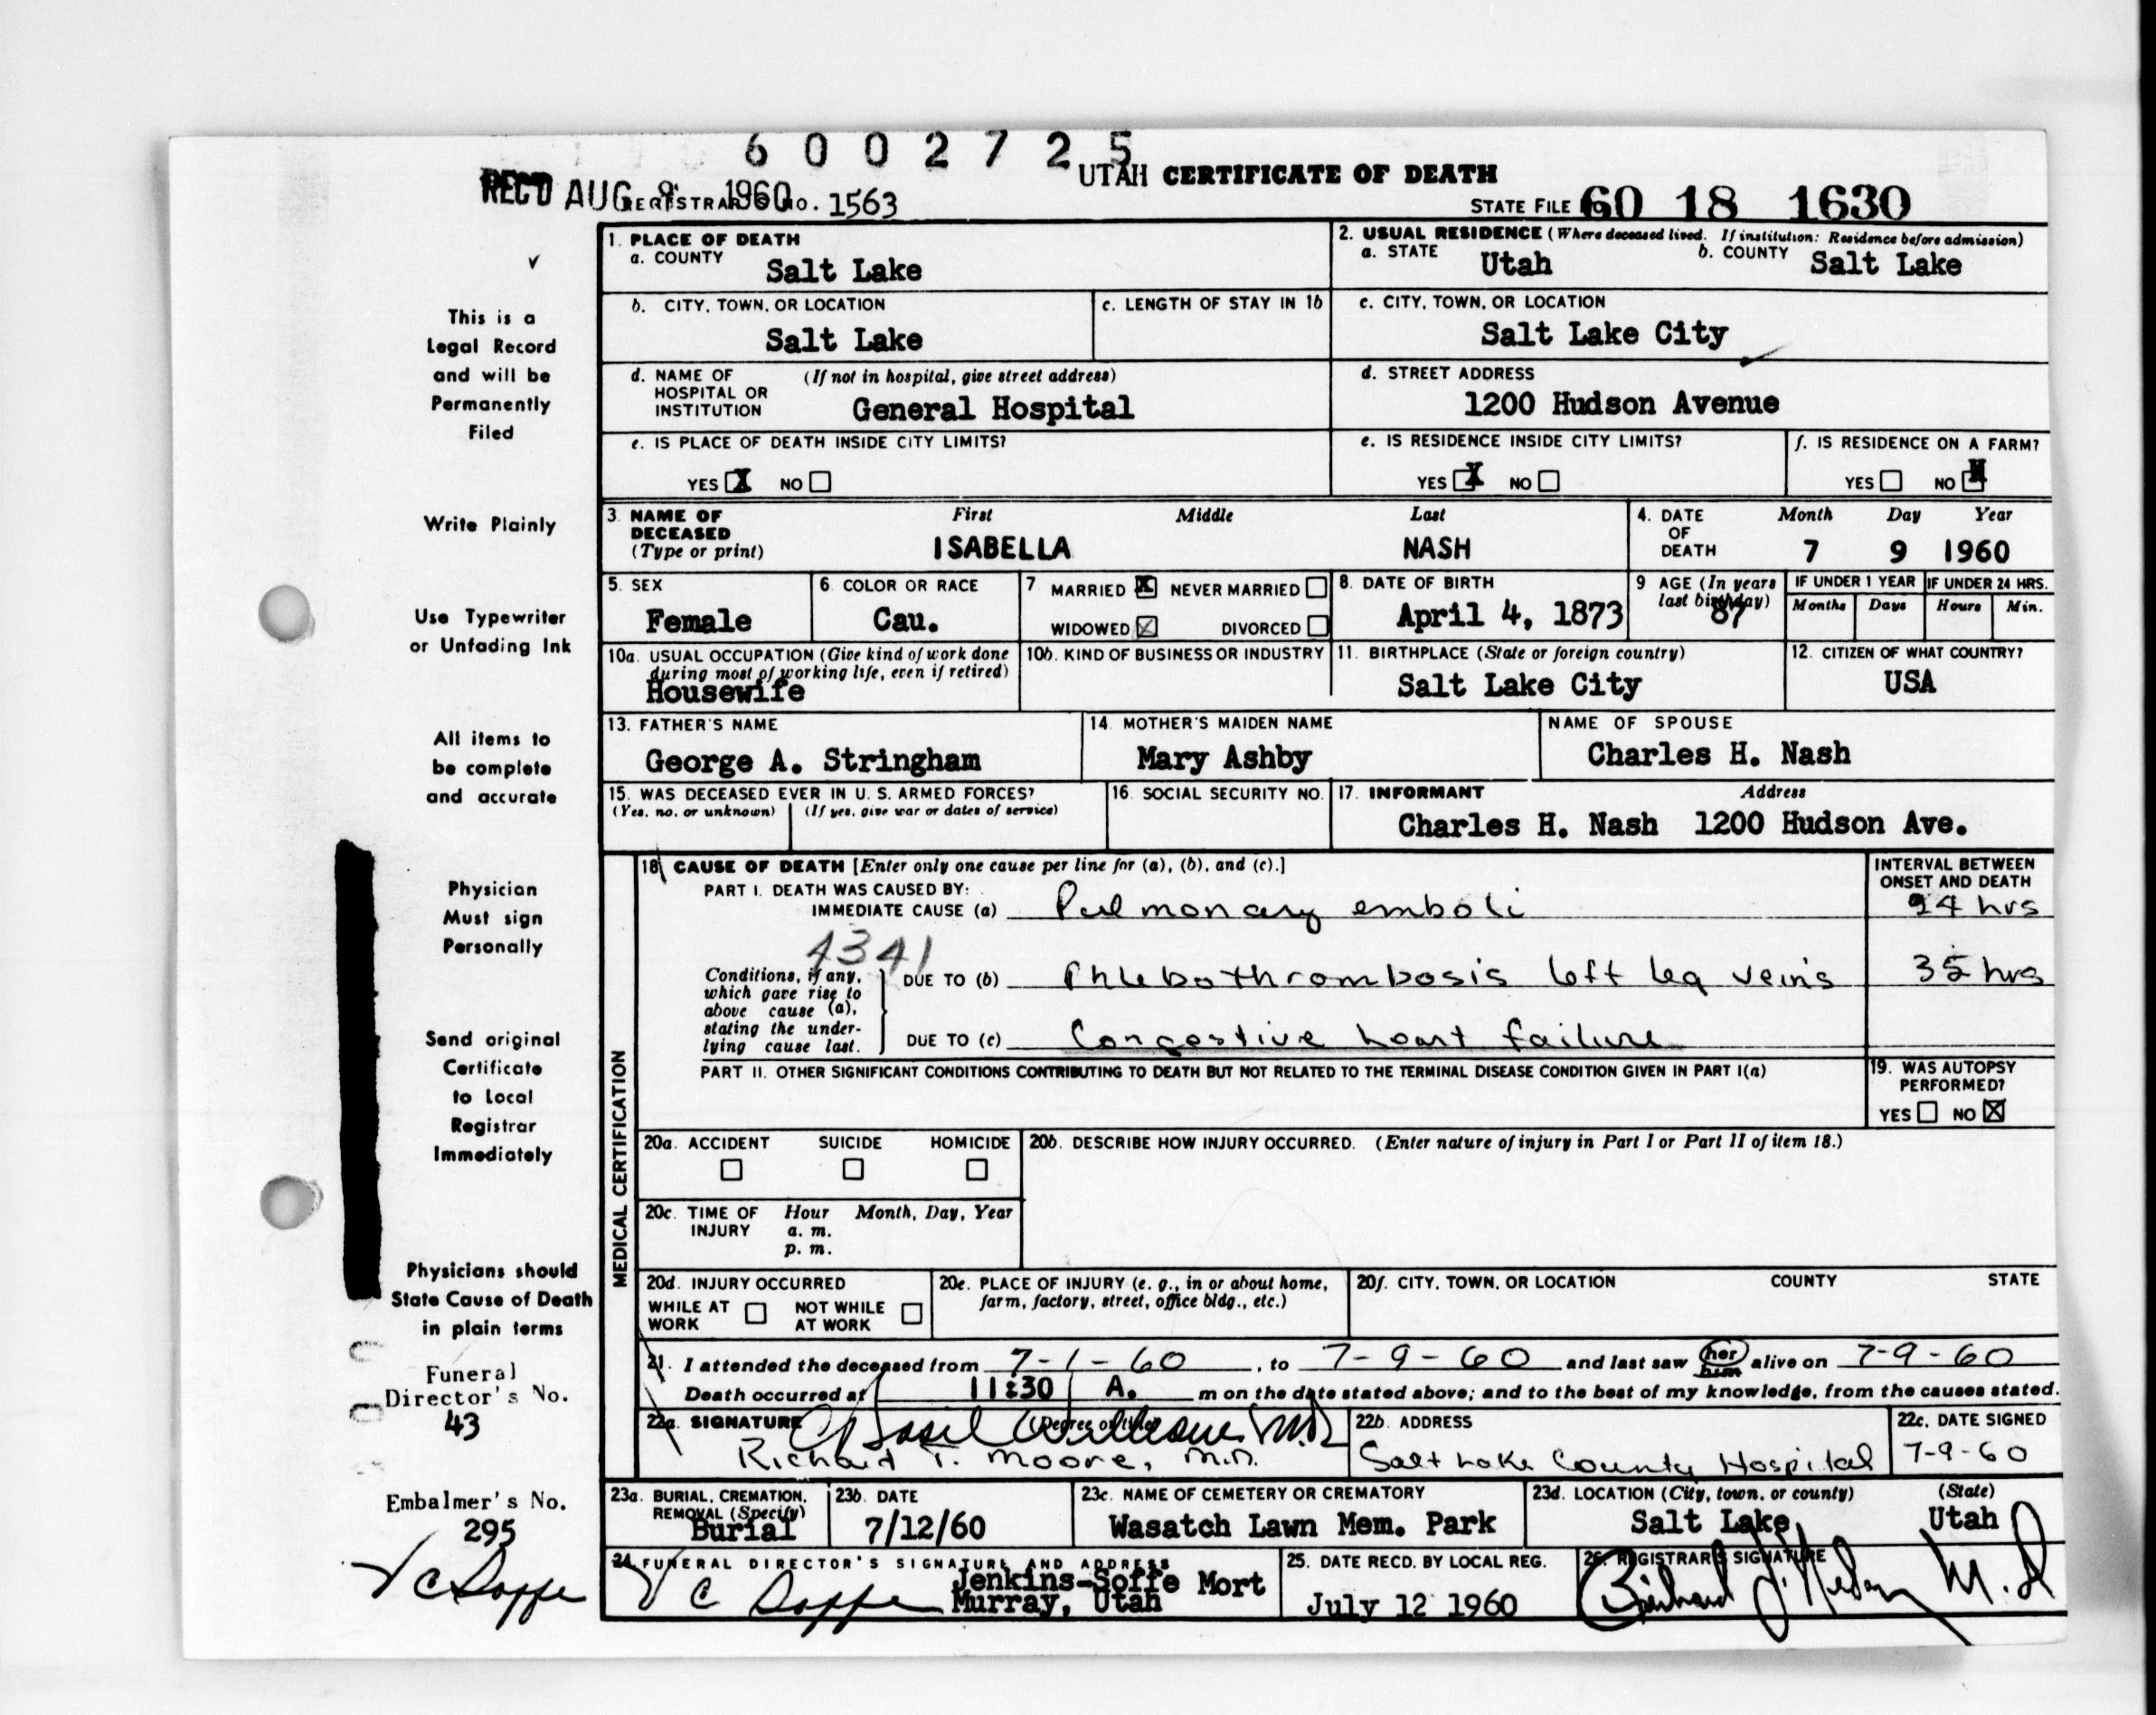 6 0 0 2 7 2 5
UTAH CERTIFICATE OF DEATH
REC'D AUG 9 1960 REGISTRAR'S NO. 1563
STATE FILE NO. 60 18 1630
1. PLACE OF DEATH
a. COUNTY Salt Lake
2. USUAL RESIDENCE (Where deceased lived. If institution: Residence before admission)
a. STATE Utah b. COUNTY Salt Lake
b. CITY, TOWN, OR LOCATION
Salt Lake
c. LENGTH OF STAY IN 1b
c. CITY, TOWN, OR LOCATION
Salt Lake City
d. NAME OF HOSPITAL OR INSTITUTION (If not in hospital, give street address)
General Hospital
d. STREET ADDRESS
1200 Hudson Avenue
e. IS PLACE OF DEATH INSIDE CITY LIMITS?
YES X NO
e. IS RESIDENCE INSIDE CITY LIMITS?
YES X NO
f. IS RESIDENCE ON A FARM?
YES NO
3. NAME OF DECEASED (Type or print)
First Middle Last
ISABELLA NASH
4. DATE OF DEATH
Month Day Year
7 9 1960
5. SEX
Female
6. COLOR OR RACE
Cau.
7 MARRIED X NEVER MARRIED
WIDOWED X DIVORCED
8. DATE OF BIRTH
April 4, 1873
9 AGE (In years last birthday)
87
IF UNDER 1 YEAR IF UNDER 24 HRS.
Months Days Hours Min.
10a. USUAL OCCUPATION (Give kind of work done during most of working life, even if retired)
Housewife
10b. KIND OF BUSINESS OR INDUSTRY
11. BIRTHPLACE (State or foreign country)
Salt Lake City
12. CITIZEN OF WHAT COUNTRY?
USA
13. FATHER'S NAME
George A. Stringham
14. MOTHER'S MAIDEN NAME
Mary Ashby
NAME OF SPOUSE
Charles H. Nash
15. WAS DECEASED EVER IN U. S. ARMED FORCES?
(Yes, no, or unknown) (If yes, give war or dates of service)
16. SOCIAL SECURITY NO.
17. INFORMANT Address
Charles H. Nash 1200 Hudson Ave.
MEDICAL CERTIFICATION
18. CAUSE OF DEATH [Enter only one cause per line for (a), (b), and (c).]
INTERVAL BETWEEN ONSET AND DEATH
PART I. DEATH WAS CAUSED BY:
IMMEDIATE CAUSE (a) Pulmonary emboli 24 hrs
4341
Conditions, if any, which gave rise to above cause (a), stating the underlying cause last.
DUE TO (b) Phlebothrombosis left leg veins 35 hrs
DUE TO (c) Congestive heart failure
PART II. OTHER SIGNIFICANT CONDITIONS CONTRIBUTING TO DEATH BUT NOT RELATED TO THE TERMINAL DISEASE CONDITION GIVEN IN PART I(a)
19. WAS AUTOPSY PERFORMED?
YES NO X
20a. ACCIDENT SUICIDE HOMICIDE
20b. DESCRIBE HOW INJURY OCCURRED. (Enter nature of injury in Part I or Part II of item 18.)
20c. TIME OF INJURY Hour Month, Day, Year
a. m.
p. m.
20d. INJURY OCCURRED
WHILE AT WORK NOT WHILE AT WORK
20e. PLACE OF INJURY (e. g., in or about home, farm, factory, street, office bldg., etc.)
20f. CITY, TOWN, OR LOCATION COUNTY STATE
21. I attended the deceased from 7-1-60, to 7-9-60 and last saw her him alive on 7-9-60
Death occurred at 11:30 A. m on the date stated above; and to the best of my knowledge, from the causes stated.
22a. SIGNATURE (Degree or title)
M.D.
Richard T. Moore, M.D.
22b. ADDRESS
Salt Lake County Hospital
22c. DATE SIGNED
7-9-60
23a. BURIAL, CREMATION, REMOVAL (Specify)
Burial
23b. DATE
7/12/60
23c. NAME OF CEMETERY OR CREMATORY
Wasatch Lawn Mem. Park
23d. LOCATION (City, town, or county) (State)
Salt Lake, Utah
24. FUNERAL DIRECTOR'S SIGNATURE AND ADDRESS
V C Soffe Jenkins-Soffe Mort
Murray, Utah
25. DATE RECD. BY LOCAL REG.
July 12 1960
26. REGISTRAR'S SIGNATURE
M.D
This is a
Legal Record
and will be
Permanently
Filed
Write Plainly
Use Typewriter
or Unfading Ink
All items to
be complete
and accurate
Physician
Must sign
Personally
Send original
Certificate
to Local
Registrar
Immediately
Physicians should
State Cause of Death
in plain terms
Funeral
Director's No.
43
Embalmer's No.
295
V C Soffe